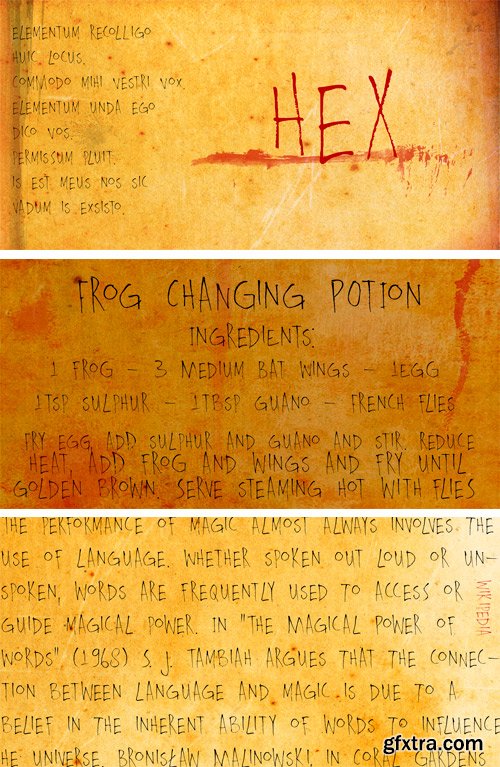 ELEMENTUM RECOLLIGO
HUIC LOCUS.
COMMODO MIHI VESTRI VOX
ELEMENTUM UNDA EGO
DICO VOS.
PERMISSUM PLUIT.
IS EST MEUS NOS SIC
VADUM IS EXSISTO.
HEX
FROG CHANGING POTION
INGREDIENTS:
1 FROG – 3 MEDIUM BAT WINGS – 1EGG
1TSP SULPHUR – 1TBSP GUANO – FRENCH FLIES
FRY EGG, ADD SULPHUR AND GUANO AND STIR. REDUCE
HEAT, ADD FROG AND WINGS AND FRY UNTIL
GOLDEN BROWN. SERVE STEAMING HOT WITH FLIES
THE PERFORMANCE OF MAGIC ALMOST ALWAYS INVOLVES THE
USE OF LANGUAGE. WHETHER SPOKEN OUT LOUD OR UN-
SPOKEN, WORDS ARE FREQUENTLY USED TO ACCESS OR
GUIDE MAGICAL POWER. IN "THE MAGICAL POWER OF
WORDS" (1968) S. J. TAMBIAH ARGUES THAT THE CONNEC-
TION BETWEEN LANGUAGE AND MAGIC IS DUE TO A
BELIEF IN THE INHERENT ABILITY OF WORDS TO INFLUENCE
HE UNIVERSE. BRONISŁAW MALINOWSKI, IN CORAL GARDENS
WIKIPEDIA
gfxtra.com